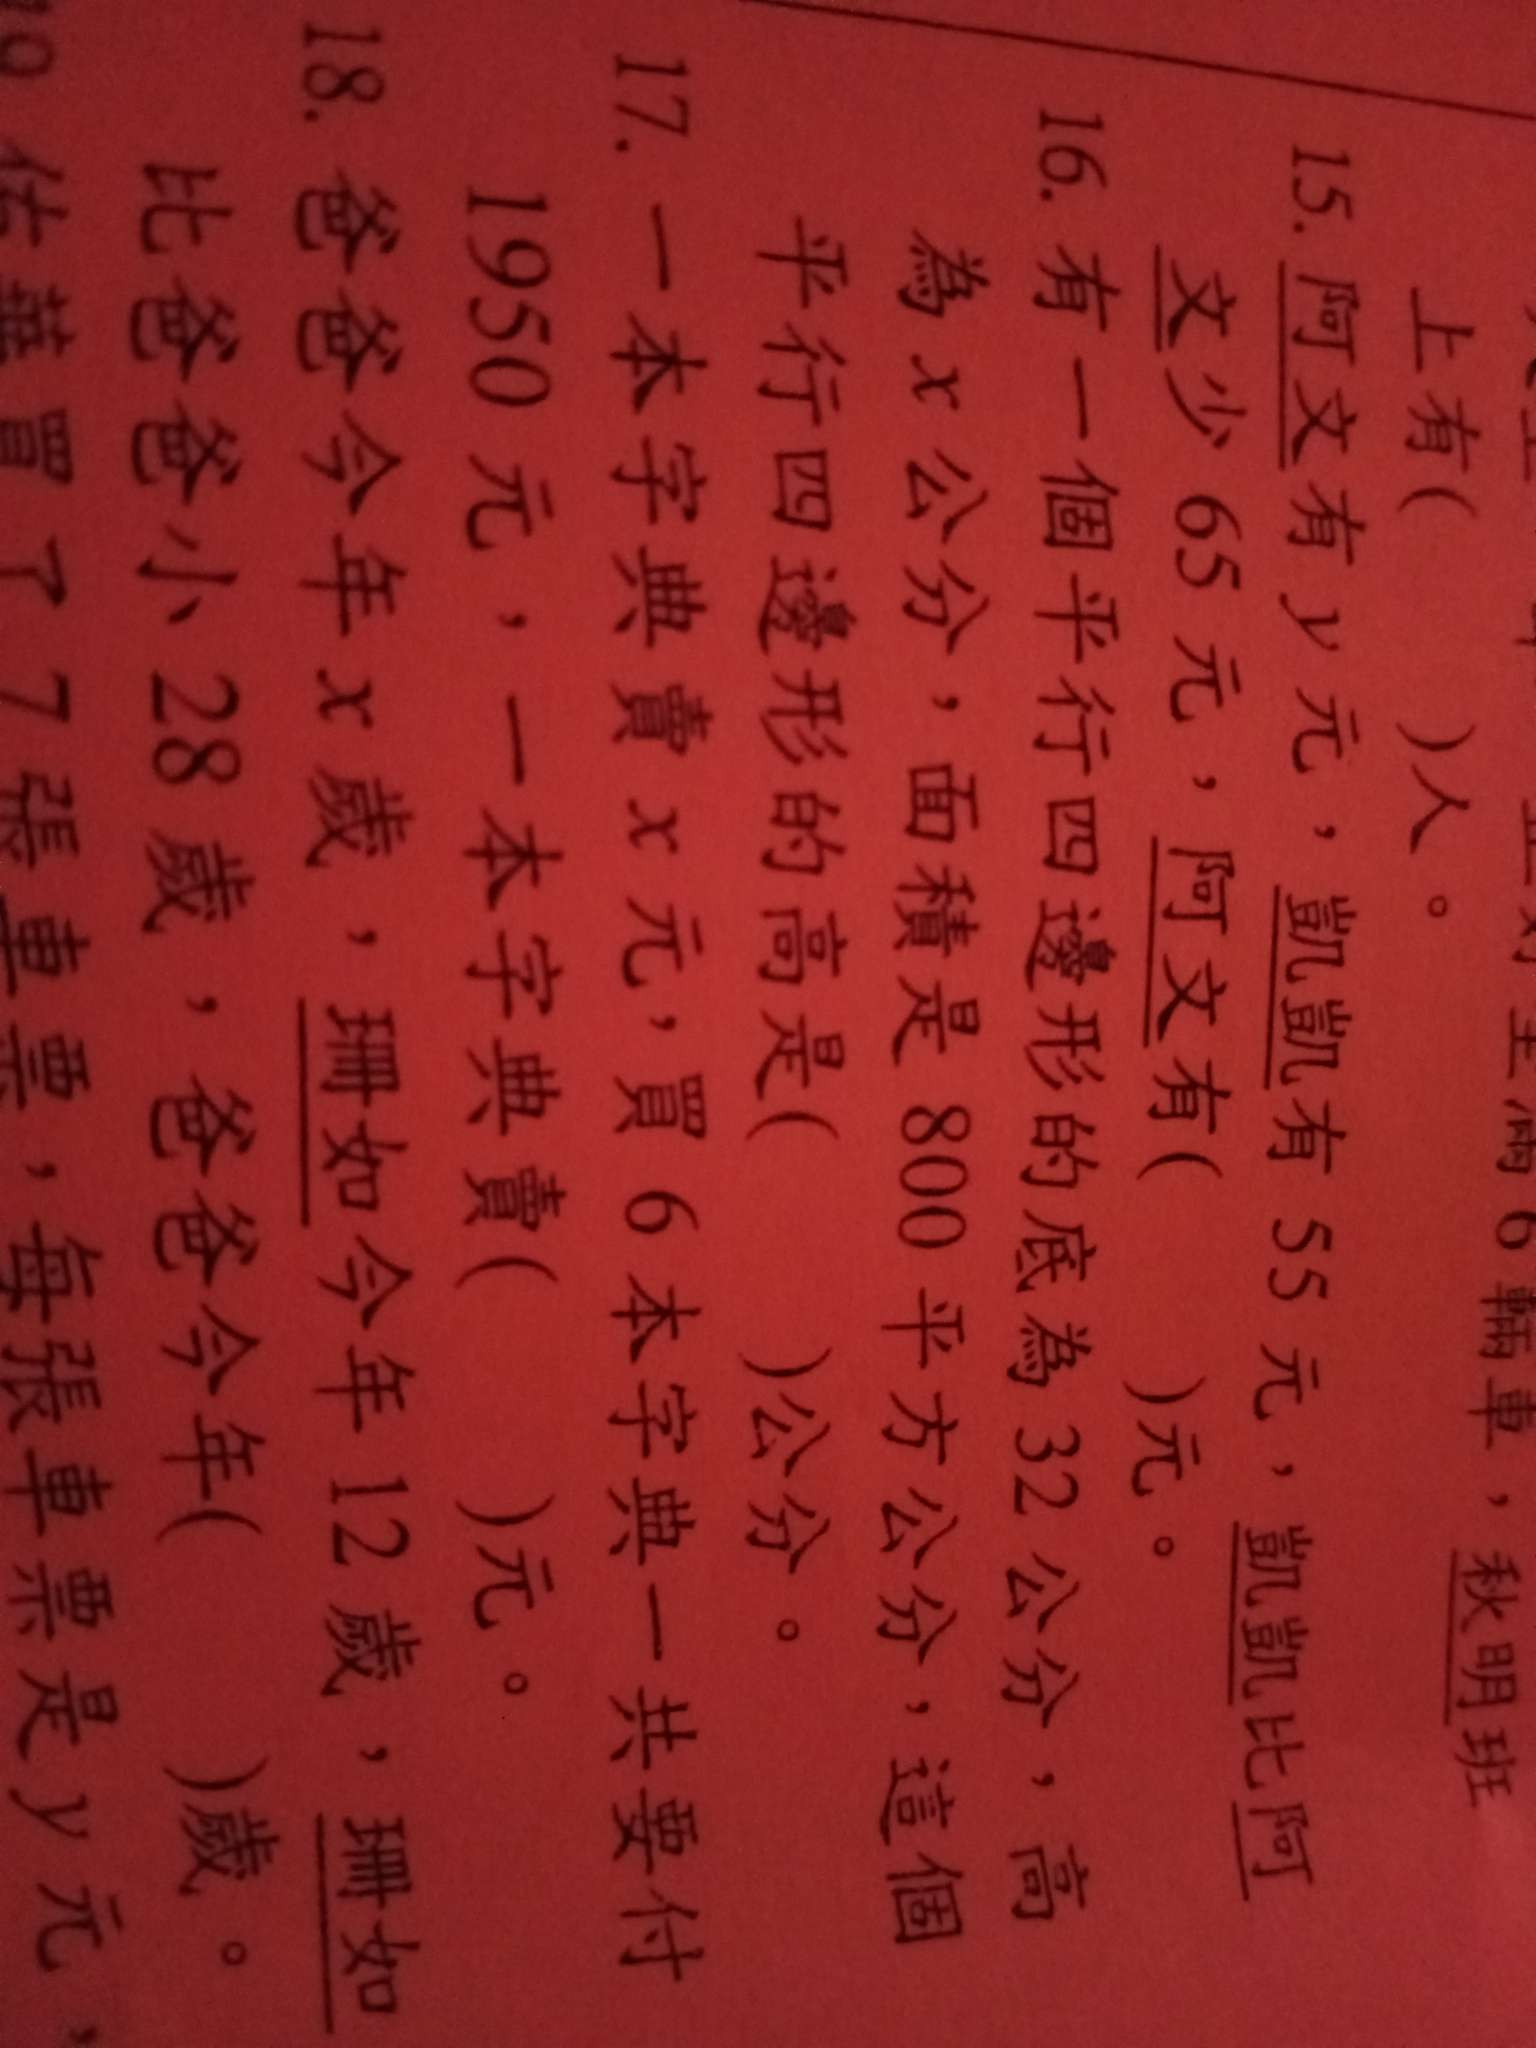 滿6輛車，秋明班
上有(　　)人。
15. 阿文有y元，凱凱有55元，凱凱比阿
文少65元，阿文有(　　)元。
16. 有一個平行四邊形的底為32公分，高
為x公分，面積是800平方公分，這個
平行四邊形的高是(　　)公分。
17. 一本字典賣x元，買6本字典一共要付
1950元，一本字典賣(　　)元。
18. 爸爸今年x歲，珊如今年12歲，珊如
比爸爸小28歲，爸爸今年(　　)歲。
買了7張車票，每張車票是y元，